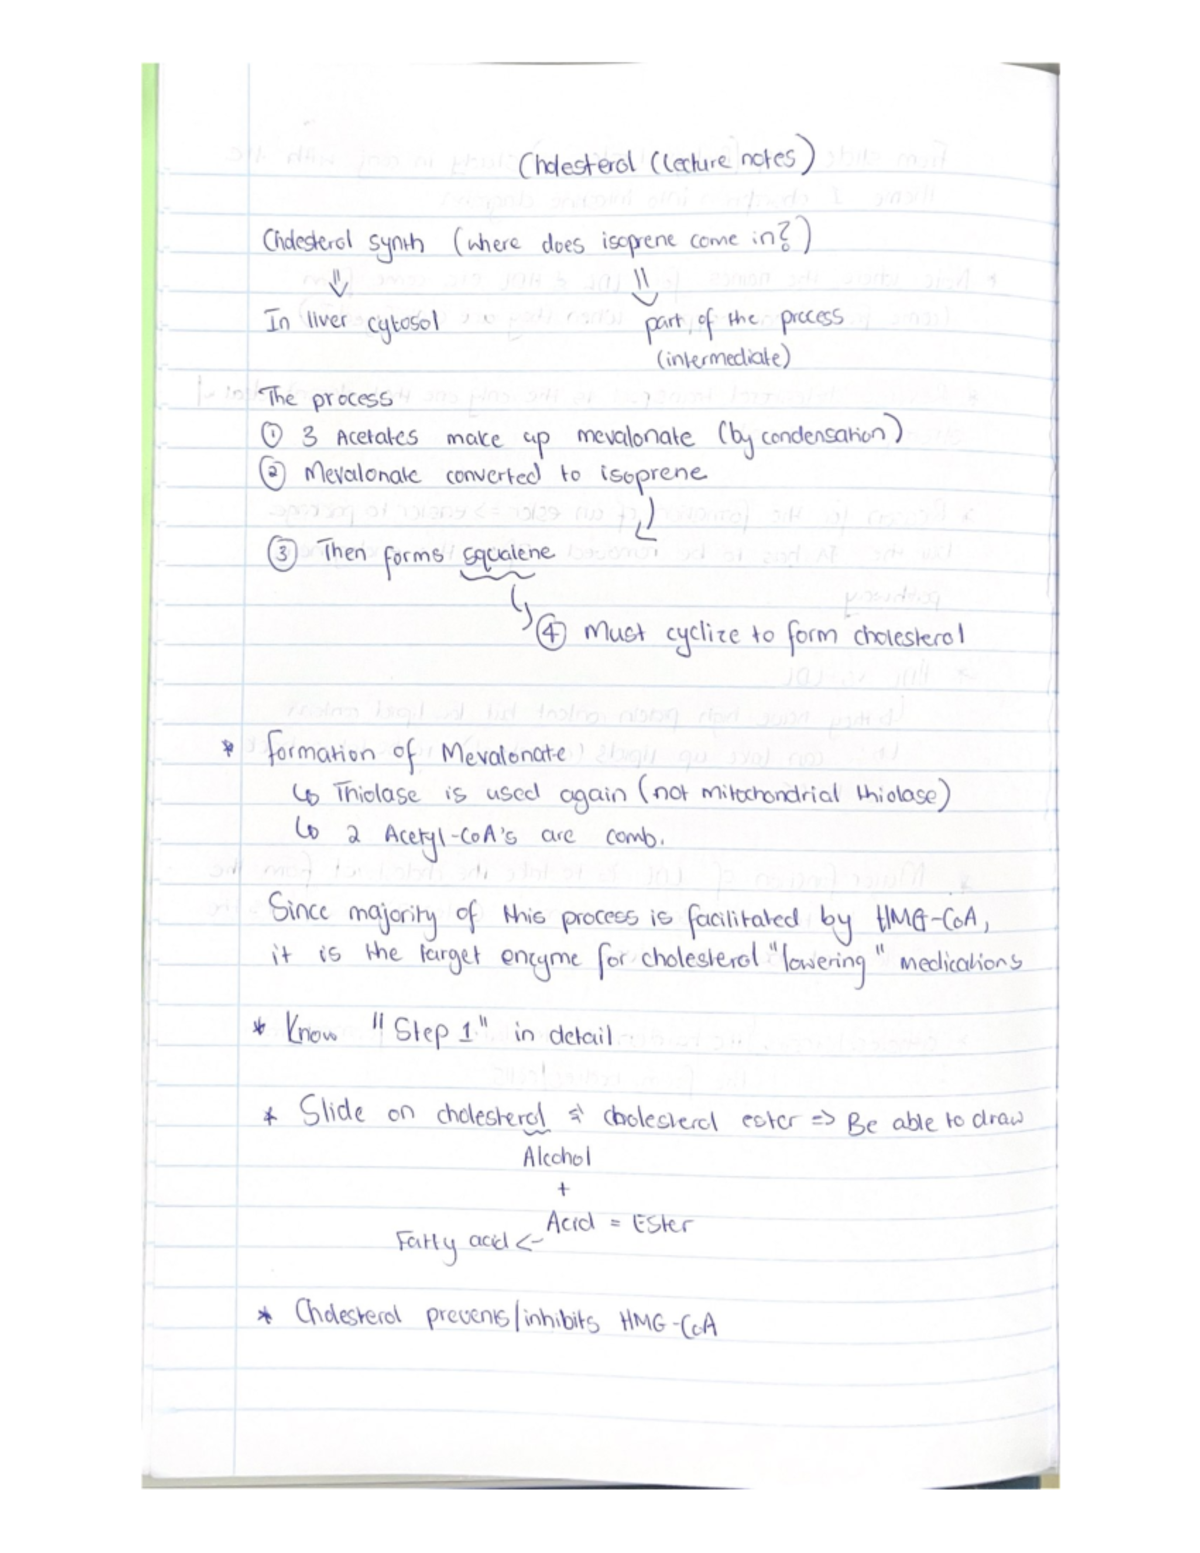 Cholesterol (lecture notes)
Cholesterol synth (where does isoprene come in?)
In liver cytosol
part of the process
(intermediate)
The process
① 3 Acetates make up mevalonate (by condensation)
② Mevalonate converted to isoprene
③ Then forms squalene
④ Must cyclize to form cholesterol
* Formation of Mevalonate
↳ Thiolase is used again (not mitochondrial thiolase)
↳ 2 Acetyl-CoA's are comb.
Since majority of this process is facilitated by HMG-CoA,
it is the target enzyme for cholesterol "lowering" medications
* Know "Step 1" in detail
* Slide on cholesterol & cholesterol ester => Be able to draw
Alcohol
+
Acid = Ester
Fatty acid <-
* Cholesterol prevents/inhibits HMG-CoA